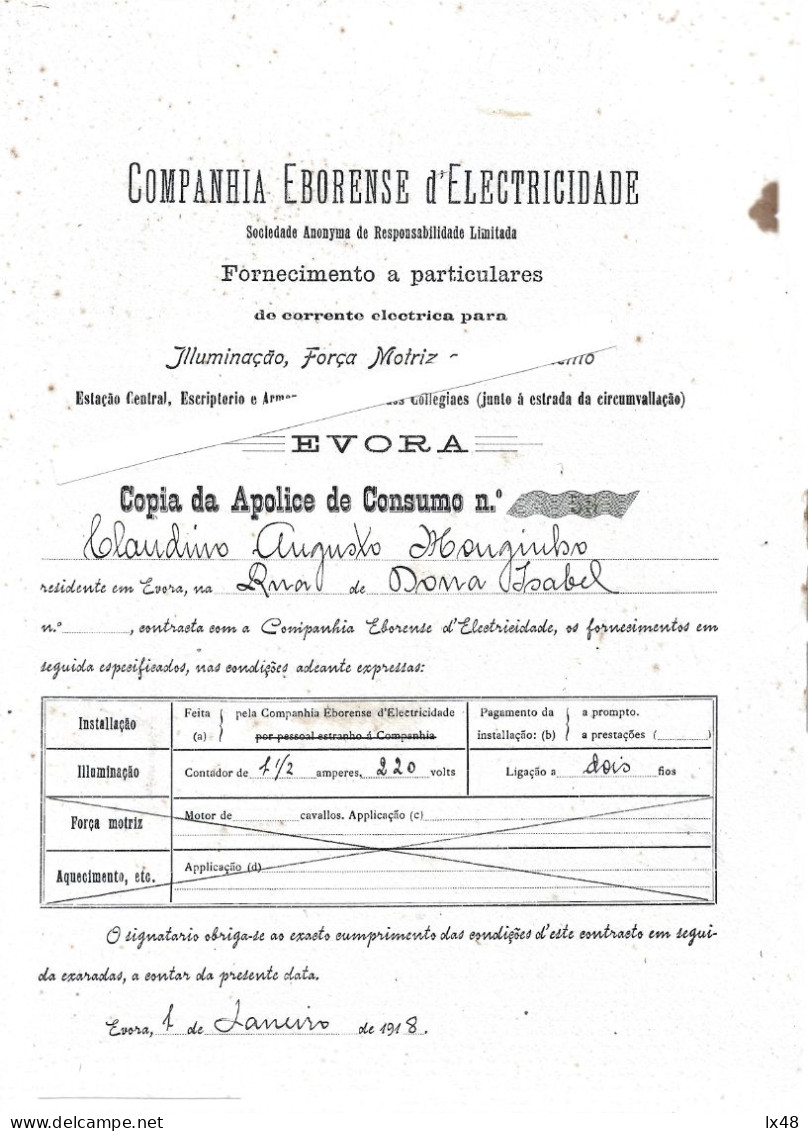 COMPANHIA EBORENSE d'ELECTRICIDADE
Sociedade Anonyma de Responsabilidade Limitada
Fornecimento a particulares
de corrente electrica para
Illuminação, Força Motriz
Estação Central, Escriptorio e Collegiaes (junto á estrada da circumvallação)
EVORA
Copia da Apolice de Consumo n.º
Claudino Augusto
residente em Evora, na Rua de Dona Isabel
n.º , contracta com a Companhia Eborense d'Electricidade, os fornecimentos em
seguida especificados, nas condições adeante expressas:
Installação Feita (a) { pela Companhia Eborense d'Electricidade
por pessoal estranho á Companhia
Pagamento da installação: (b) { a prompto.
a prestações ( )
Illuminação Contador de 1 1/2 amperes, 220 volts Ligação a dois fios
Força motriz Motor de cavallos. Applicação (c)
Aquecimento, etc. Applicação (d)
O signatario obriga-se ao exacto cumprimento das condições d'este contracto em segui-
da exaradas, a contar da presente data.
Evora, 1 de Janeiro de 1918.
lx48
www.delcampe.net